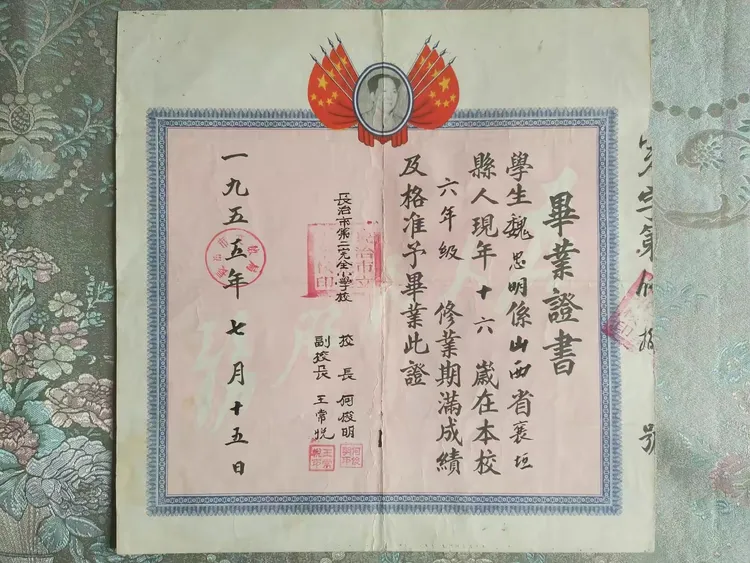 畢業證書
學生魏忠明係山西省襄垣
縣人現年十六歲在本校
六年級 修業期滿成績
及格准予畢業此證
長治市第二完全小學校
校長 何俊明
副校長 王常悅
一九五五年七月十五日